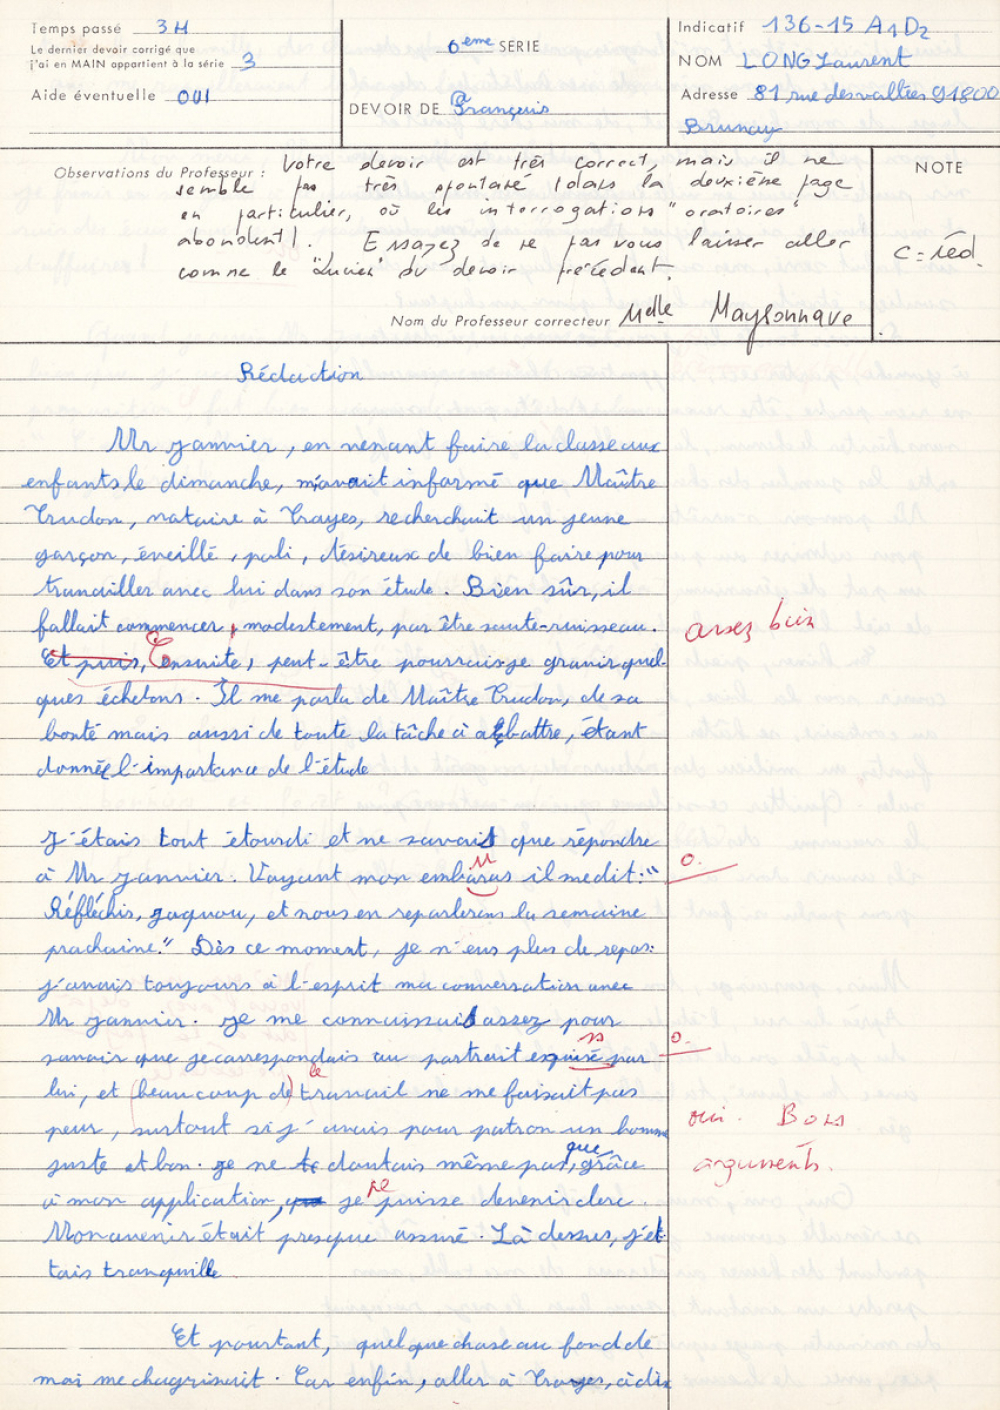 Temps passé 3H
Le dernier devoir corrigé que
j'ai en MAIN appartient à la série 3
Aide éventuelle OUI
6eme SERIE
DEVOIR DE Français
Indicatif 136-15 A1D2
NOM LONG Laurent
Adresse 81 rue des vallées 91800
Brunoy
Observations du Professeur : Votre devoir est très correct, mais il ne
semble pas très spontané (dans la deuxième page
en particulier, où les interrogations "oratoires"
abondent). Essayez de ne pas vous laisser aller
comme le "Lucien" du devoir précédent.
Nom du Professeur correcteur Melle Maysonnave
NOTE
C = réd.
Rédaction
Mr Janvier, en venant faire la classe aux
enfants le dimanche, m'avait informé que Maître
Trudon, notaire à Troyes, recherchait un jeune
garçon, éveillé, poli, désireux de bien faire pour
travailler avec lui dans son étude. Bien sûr, il
fallait commencer, modestement, par être saute-ruisseau.
assez bien
Et puis, Ensuite, peut-être pourrais-je gravir quel-
ques échelons. Il me parla de Maître Trudon, de sa
bonté mais aussi de toute la tâche à abattre, étant
donnée l'importance de l'étude
J'étais tout étourdi et ne savais que répondre
à Mr Janvier. Voyant mon embaras il me dit : "
Réfléchis, gaquou, et nous en reparlerons la semaine
prochaine." Dès ce moment, je n'eus plus de repos :
j'avais toujours à l'esprit ma conversation avec
Mr Janvier. Je me connaissais assez pour
savoir que je correspondais au portrait esquisé par
lui, et (beaucoup de) le travail ne me faisait pas
peur, surtout si j'avais pour patron un homme
oui. Bons
juste et bon. Je ne doutais même pas, que, grâce
arguments.
à mon application, je ne puisse devenir clerc.
Mon avenir était presque assuré. Là dessus, j'é-
tais tranquille
Et pourtant, quelque chose au fond de
moi me chagrinait. Car enfin, aller à Troyes, à dix